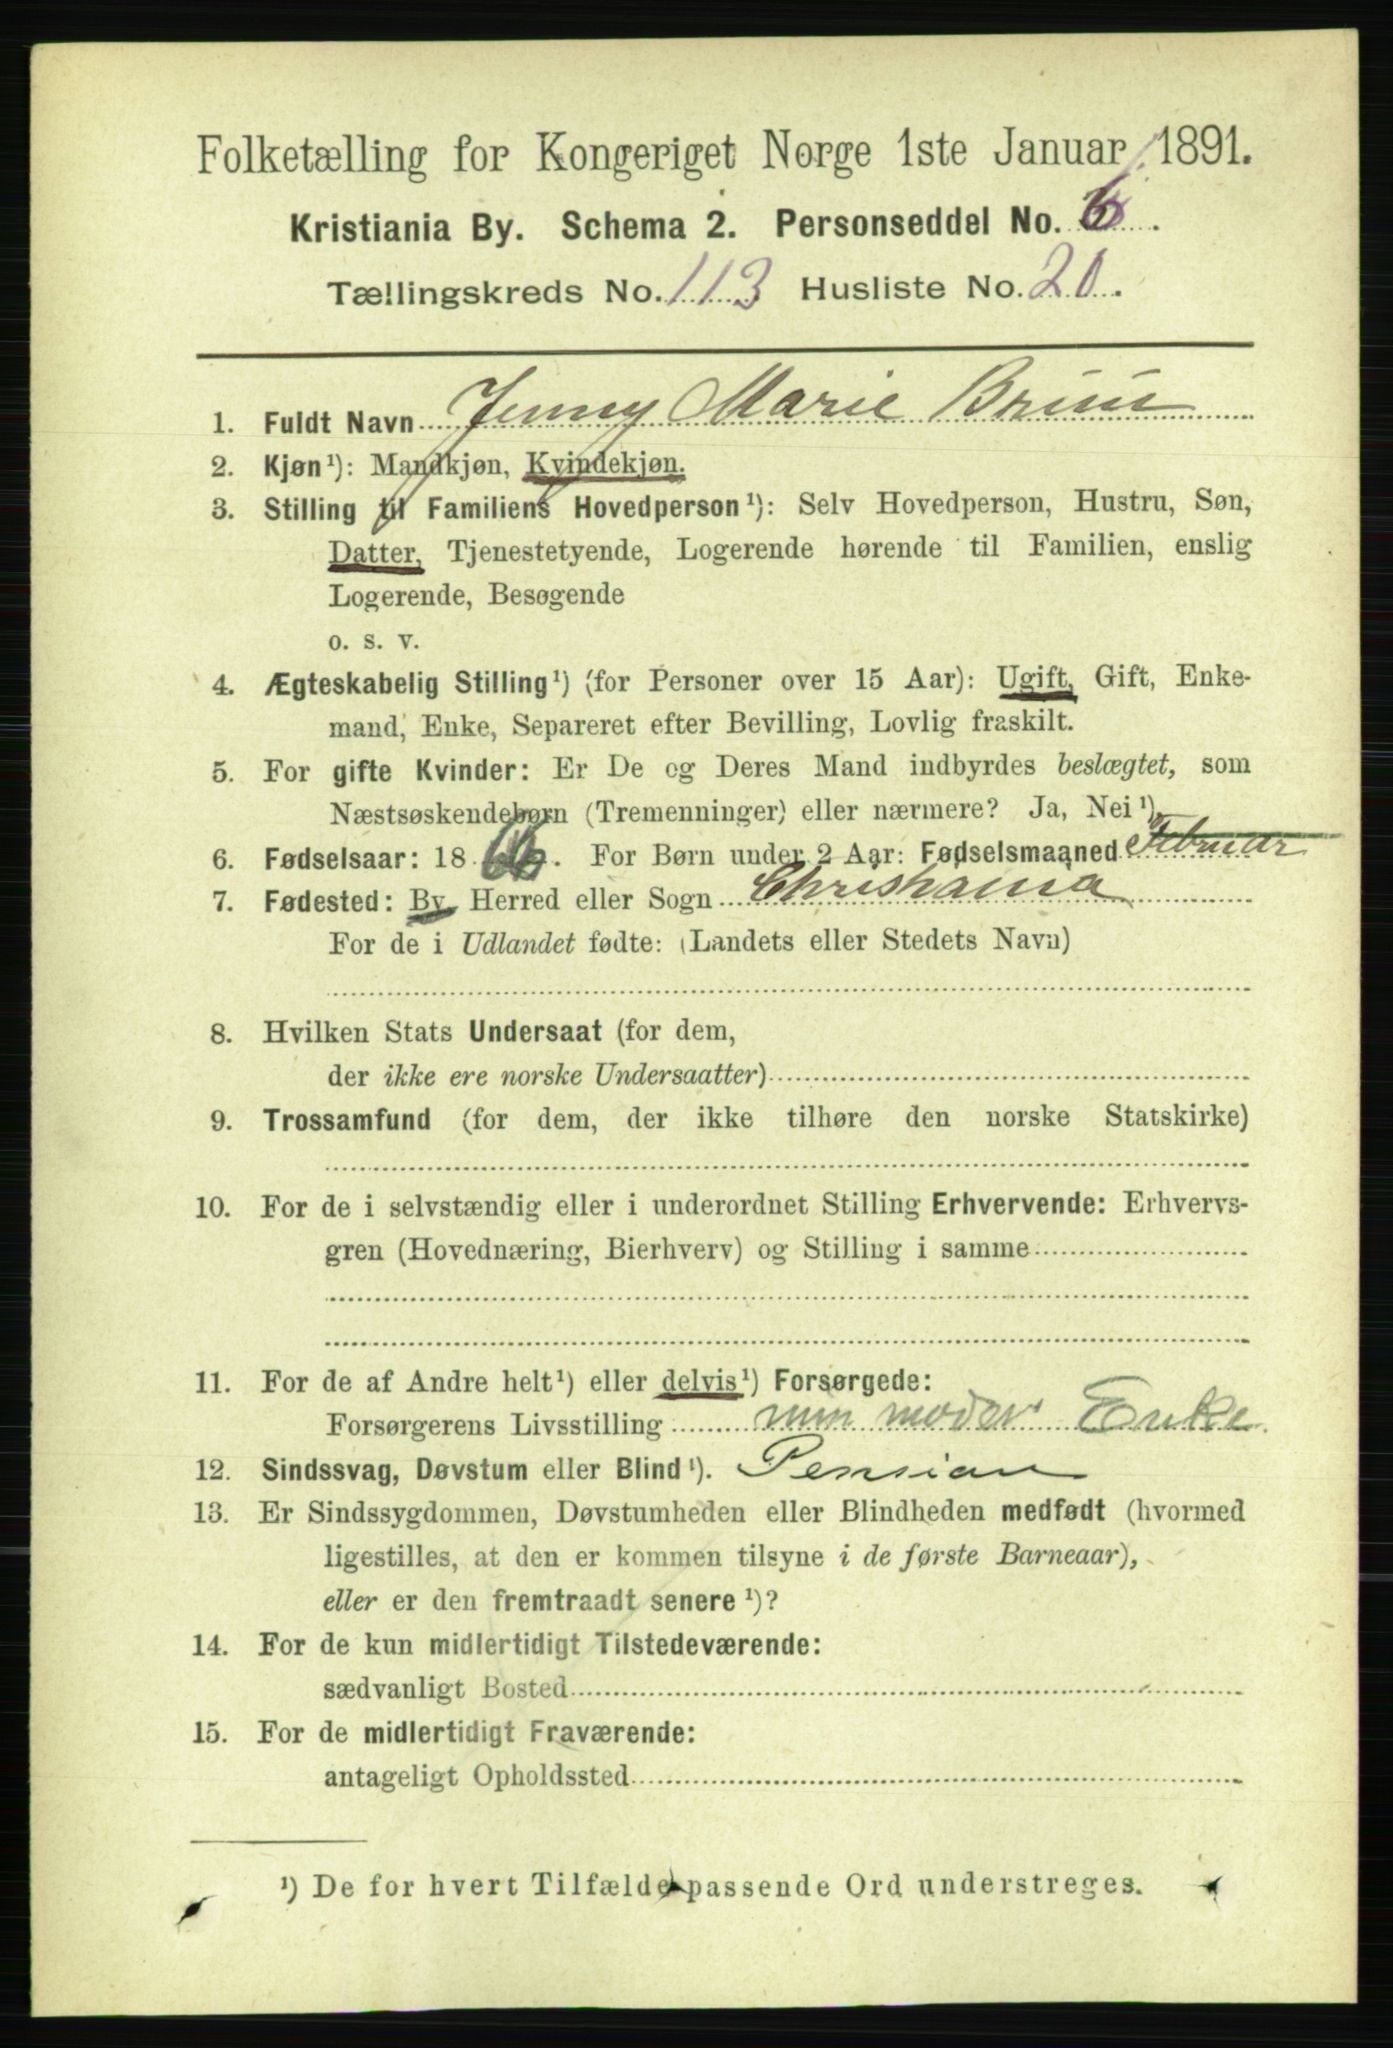 Folketælling for Kongeriget Norge 1ste Januar 1891.
Kristiania By. Schema 2. Personseddel No. 6.
Tællingskreds No. 113 Husliste No. 20.
1. Fuldt Navn Jenny Marie Bruu
2. Kjøn¹): Mandkjøn, Kvindekjøn.
3. Stilling til Familiens Hovedperson¹): Selv Hovedperson, Hustru, Søn,
Datter, Tjenestetyende, Logerende hørende til Familien, enslig
Logerende, Besøgende
o. s. v.
4. Ægteskabelig Stilling¹) (for Personer over 15 Aar): Ugift, Gift, Enke-
mand, Enke, Separeret efter Bevilling, Lovlig fraskilt.
5. For gifte Kvinder: Er De og Deres Mand indbyrdes beslægtet, som
Næstsøskendebørn (Tremenninger) eller nærmere? Ja, Nei ¹),
6. Fødselsaar: 1866. For Børn under 2 Aar: Fødselsmaaned Februar
7. Fødested: By, Herred eller Sogn Christiania
For de i Udlandet fødte: (Landets eller Stedets Navn)
8. Hvilken Stats Undersaat (for dem,
der ikke ere norske Undersaatter)
9. Trossamfund (for dem, der ikke tilhøre den norske Statskirke)
10. For de i selvstændig eller i underordnet Stilling Erhvervende: Erhvervs-
gren (Hovednæring, Bierhverv) og Stilling i samme
11. For de af Andre helt¹) eller delvis¹) Forsørgede:
Forsørgerens Livsstilling min moder Enke
12. Sindssvag, Døvstum eller Blind¹). Pension
13. Er Sindssygdommen, Døvstumheden eller Blindheden medfødt (hvormed
ligestilles, at den er kommen tilsyne i de første Barneaar),
eller er den fremtraadt senere ¹)?
14. For de kun midlertidigt Tilstedeværende:
sædvanligt Bosted
15. For de midlertidigt Fraværende:
antageligt Opholdssted
¹) De for hvert Tilfælde passende Ord understreges.